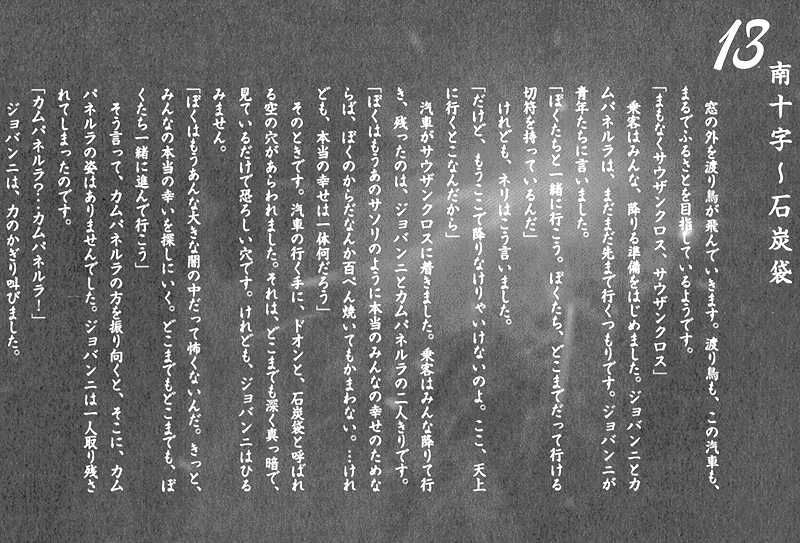 13
南十字~石炭袋
窓の外を渡り鳥が飛んでいきます。渡り鳥も、この汽車も、
まるでふるさとを目指しているようです。
「まもなくサウザンクロス、サウザンクロス」
乗客はみんな、降りる準備をはじめました。ジョバンニとカ
ムパネルラは、まだまだ先まで行くつもりです。ジョバンニが
青年たちに言いました。
「ぼくたちと一緒に行こう。ぼくたち、どこまでだって行ける
切符を持っているんだ」
けれども、ネリはこう言いました。
「だけど、もうここで降りなけりゃいけないのよ。ここ、天上
に行くとこなんだから」
汽車がサウザンクロスに着きました。乗客はみんな降りて行
き、残ったのは、ジョバンニとカムパネルラの二人きりです。
「ぼくはもうあのサソリのように本当のみんなの幸せのためな
らば、ぼくのからだなんか百ぺん焼いてもかまわない。…けれ
ども、本当の幸せは一体何だろう」
そのときです。汽車の行く手に、ドオンと、石炭袋と呼ばれ
る空の穴があらわれました。それは、どこまでも深く真っ暗で、
見ているだけで恐ろしい穴です。けれども、ジョバンニはひる
みません。
「ぼくはもうあんな大きな闇の中だって怖くないんだ。きっと、
みんなの本当の幸いを探しにいく。どこまでもどこまでも、ぼ
くたち一緒に進んで行こう」
そう言って、カムパネルラの方を振り向くと、そこに、カム
パネルラの姿はありませんでした。ジョバンニは一人取り残さ
れてしまったのです。
「カムパネルラ?…カムパネルラー!」
ジョバンニは、力のかぎり叫びました。